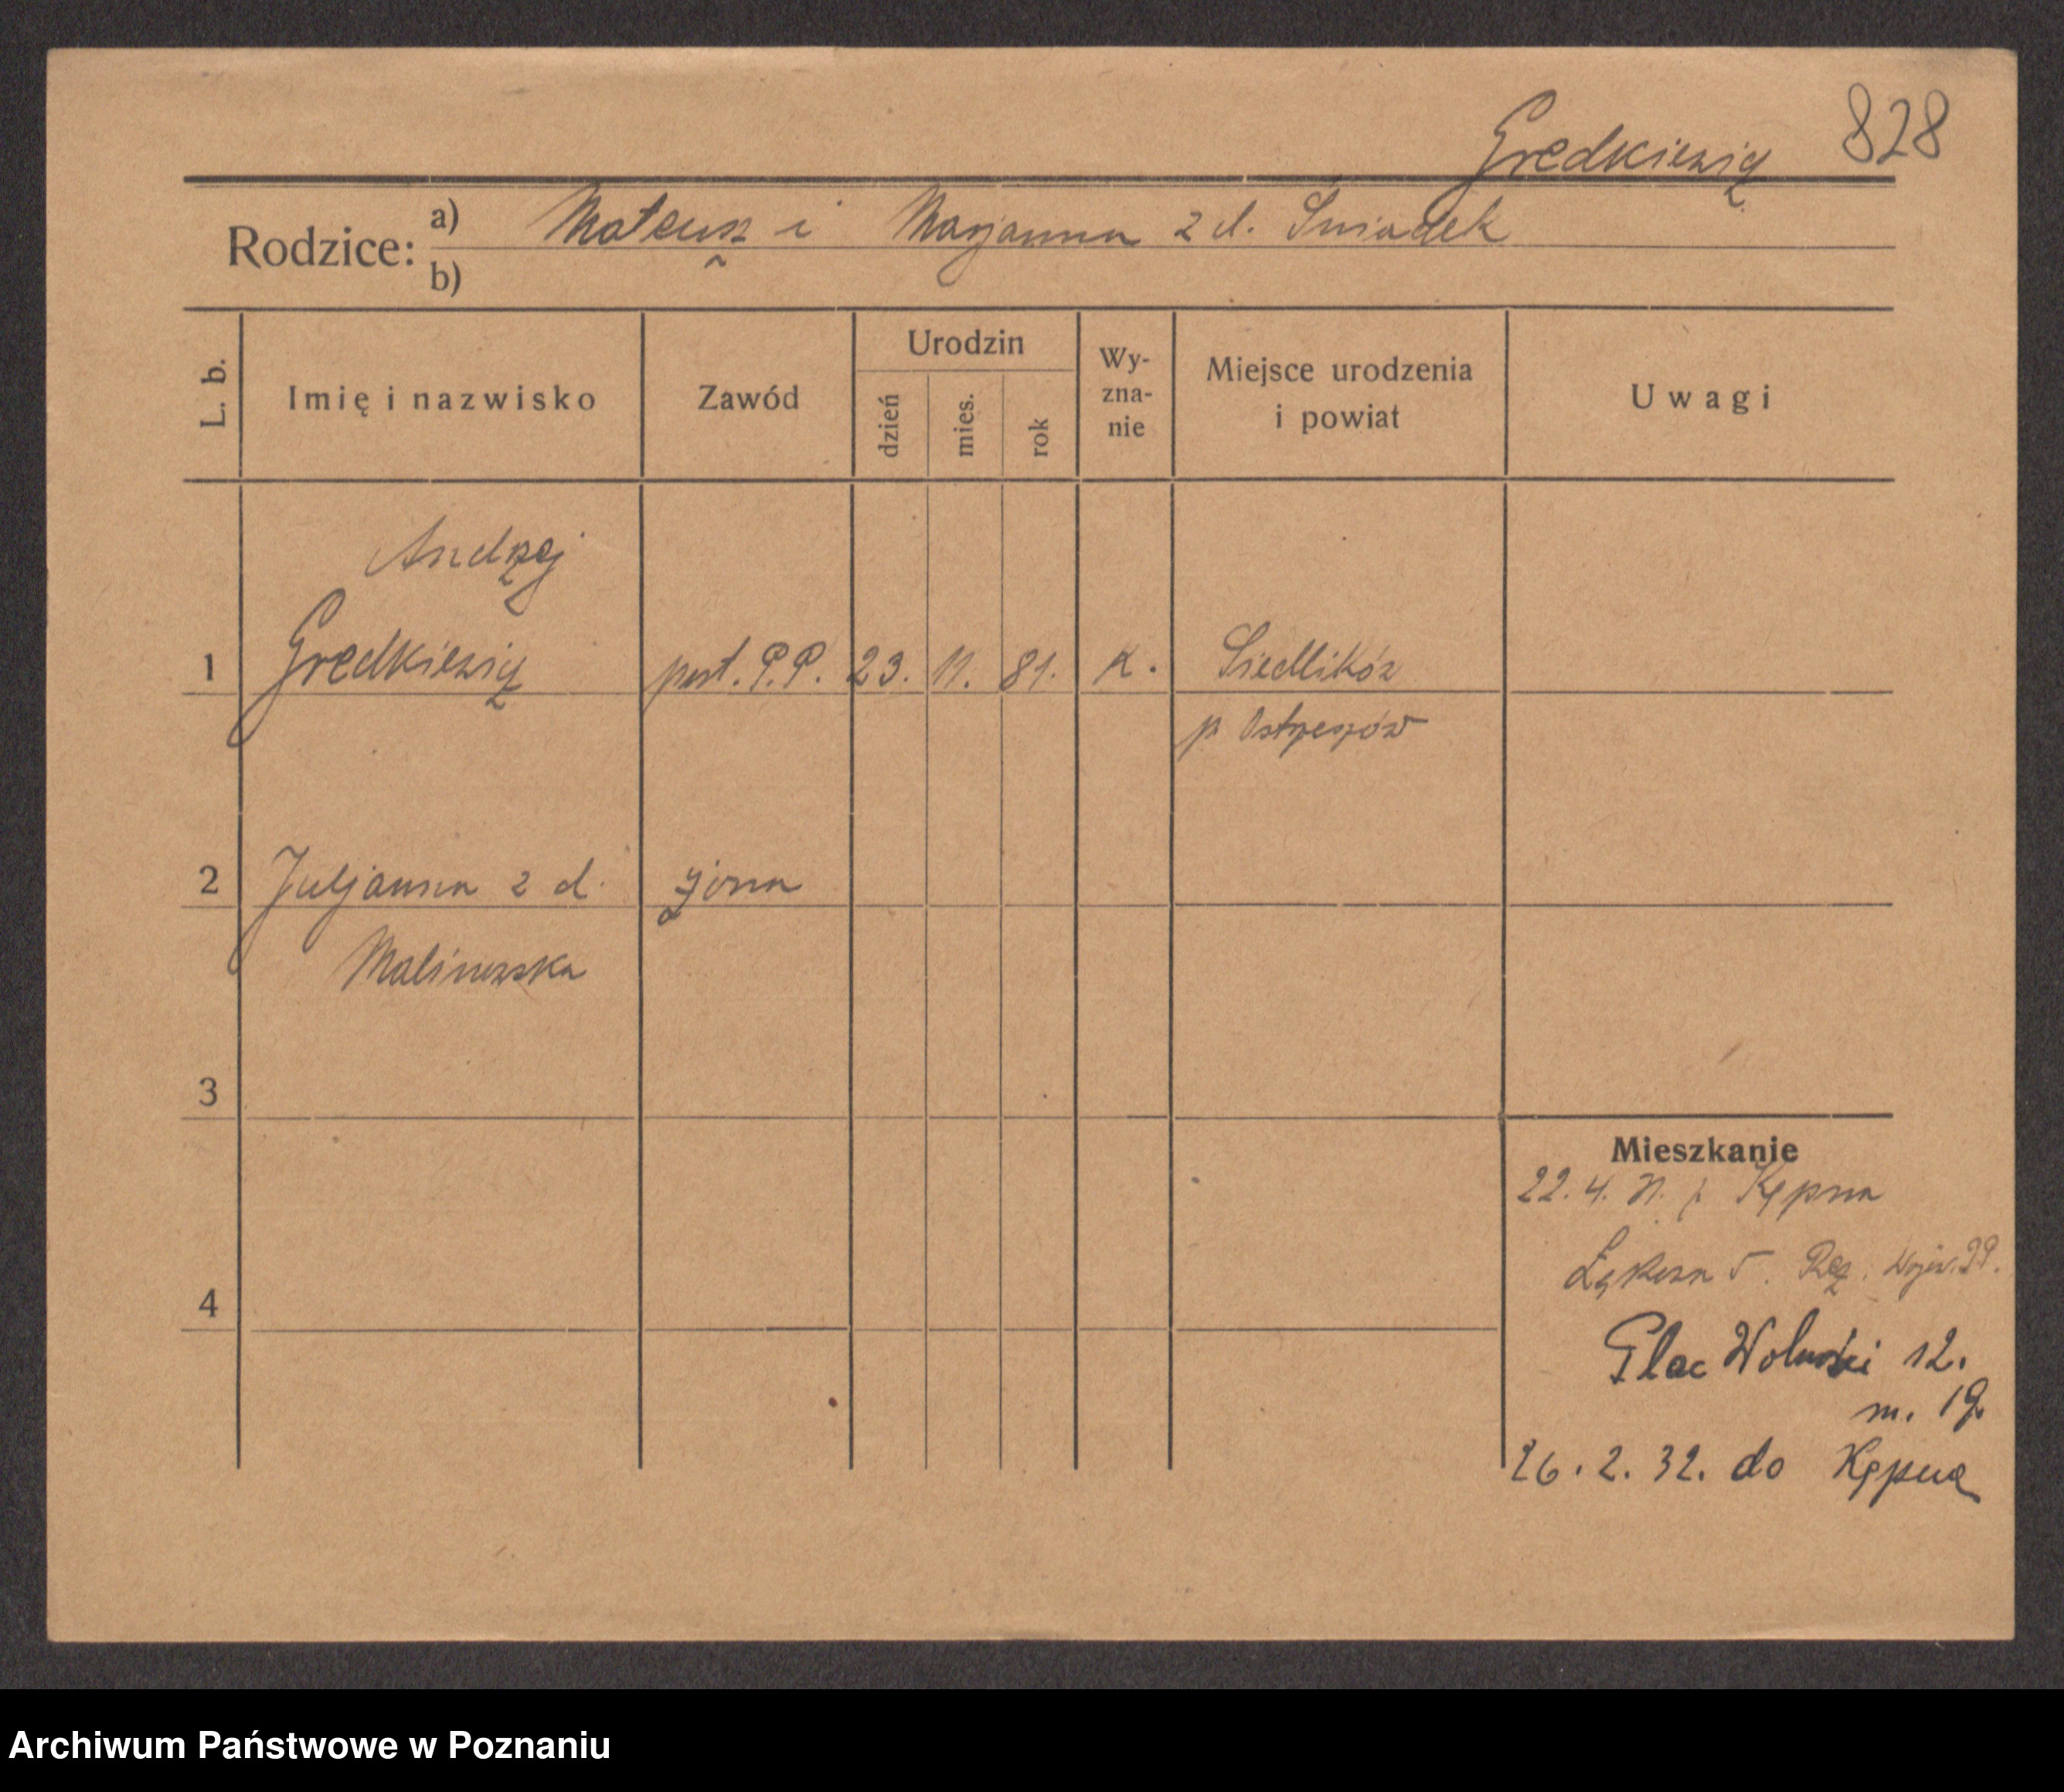 Gredkiewicz 828
Rodzice: a) Mateusz i Marjanna z d. Śniadek
b)
L. b. Imię i nazwisko Zawód Urodzin dzień mies. rok Wy-zna-nie Miejsce urodzenia i powiat Uwagi
Andrzej
1 Gredkiewicz post. P.P. 23. 11. 81. K. Siedlików
p Ostrzeszów
2 Juljanna z d. żona
Malinowska
3
4
Mieszkanie
22. 4. Kępna
Łąkowa 5.
Plac Wolności 12.
m. 19.
26. 2. 32. do Kępna
Archiwum Państwowe w Poznaniu